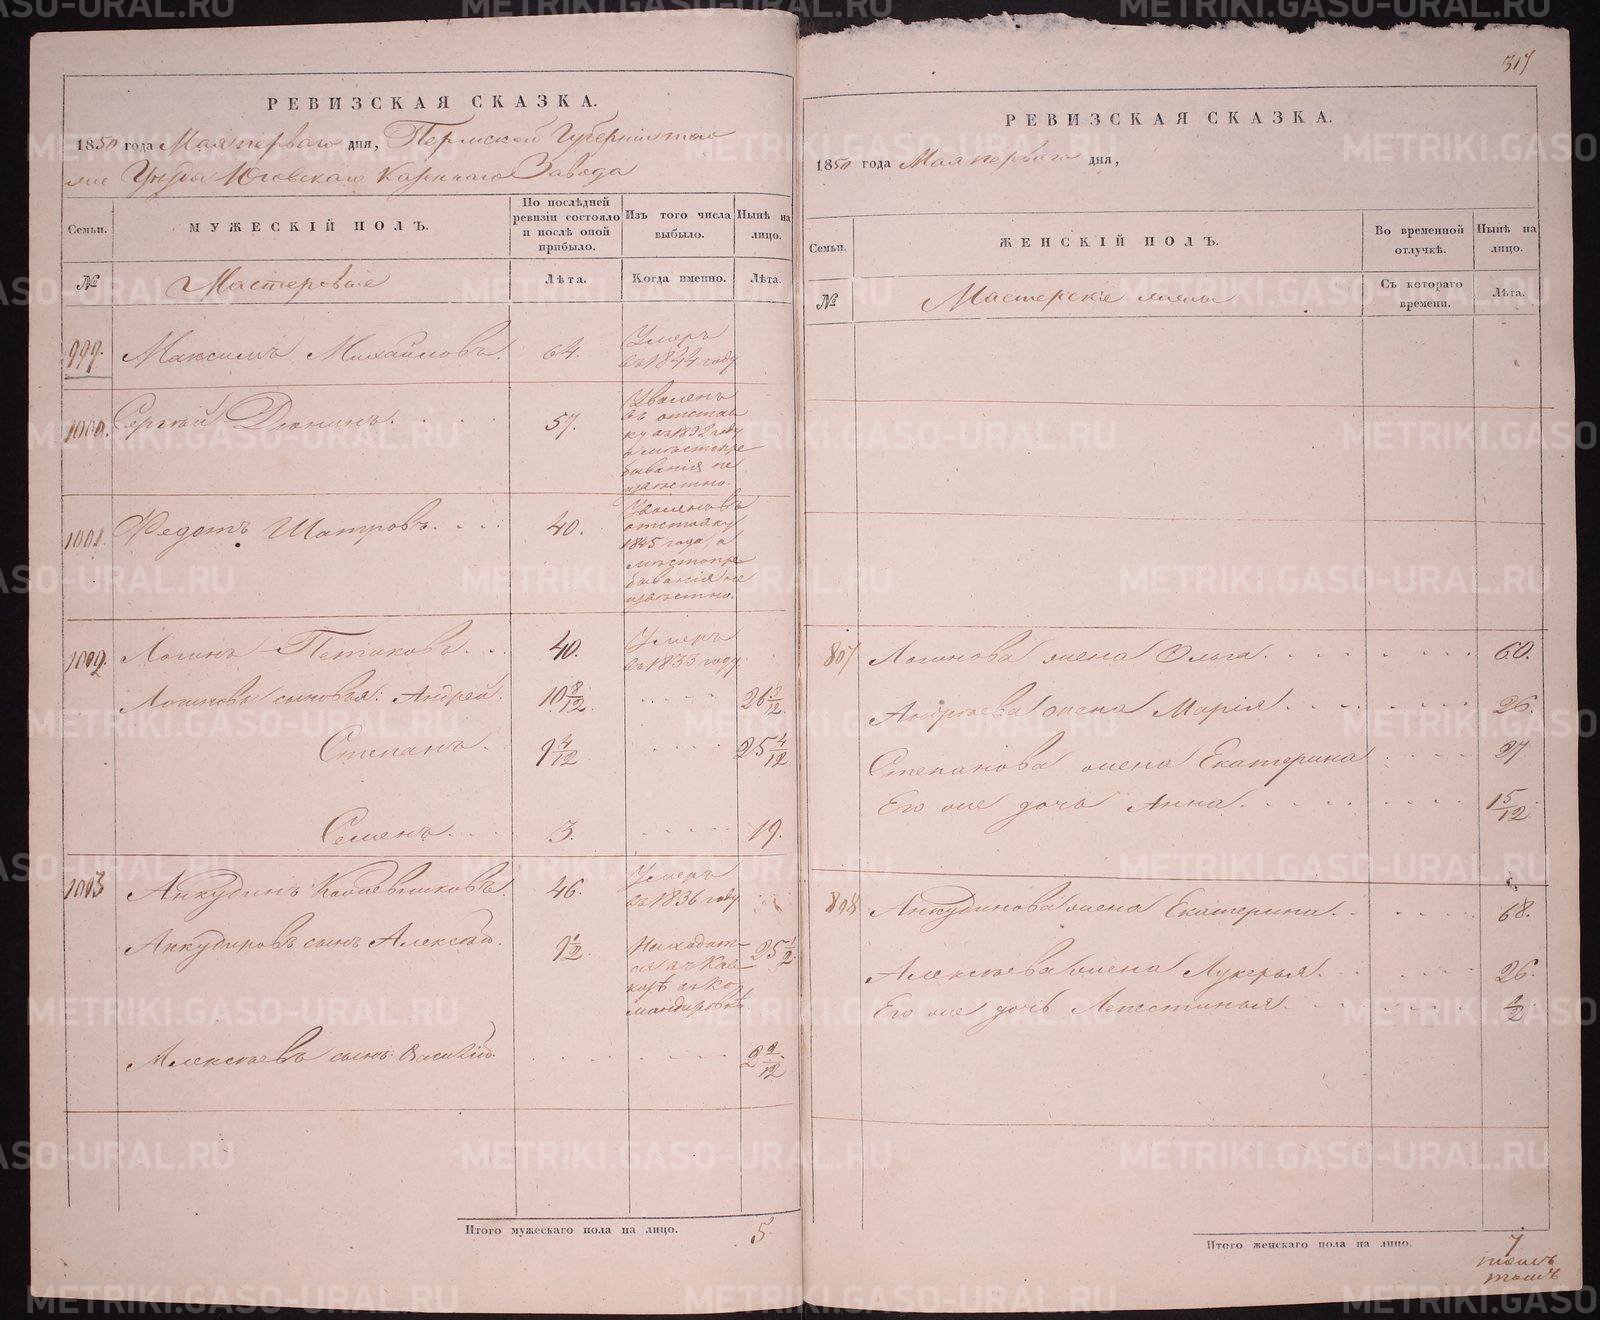 РЕВИЗСКАЯ СКАЗКА.
1850 года Мая перваго дня, Пермской Губерніи того
же Уезда Юговскаго Казеннаго Завода
Семьи.
МУЖЕСКІЙ ПОЛЪ.
По послѣдней ревизіи состояло и послѣ оной прибыло.
Изъ того числа выбыло.
Нынѣ на лицо.
№
Мастеровые
Лѣта.
Когда именно.
Лѣта.
999. Максимъ Михайловъ. 64. Умеръ
въ 1844 году
1000. Сергѣй Дюнинъ. 57. Уволенъ
въ отстав
ку въ году
а мѣстопре
быванія не
извѣстно.
1001. Федотъ Шатровъ. 40. Уволенъ въ
отставку
1845 года, а
мѣстопре
быванія не
извѣстно.
1002. Логинъ 40. Умеръ
въ 1835 году.
Логиновы сыновья: Андрей. 10 8/12. 26
Степанъ. 9 4/12 25 4/12
Семенъ. 3. 19.
1003 Анкудинъ 46. Умеръ
въ 1836 году
Анкудиновъ сынъ Алексѣй. 9 1/2. Находит-
ся въ Кав-
казѣ въ Ко
мандировкѣ. 25 1/2
Алексѣевъ сынъ Василій. 2 2/12
Итого мужескаго пола на лицо. 5.
317
РЕВИЗСКАЯ СКАЗКА.
1850 года Мая перваго дня,
Семьи.
ЖЕНСКІЙ ПОЛЪ.
Во временной отлучкѣ.
Нынѣ на лицо.
№
Мастерскіе жены
Съ котораго времени.
Лѣта.
807 Логинова жена Ольга. 60.
Андреева жена Марія. 26.
Степанова жена Екатерина 27
Его же дочь Анна. 1 5/12
808 Анкудинова жена Екатерина. 68.
Алексѣева жена Лукерья. 26.
Его же дочь 1/2
Итого женскаго пола на лицо. 7
METRIKI.GASO-URAL.RU